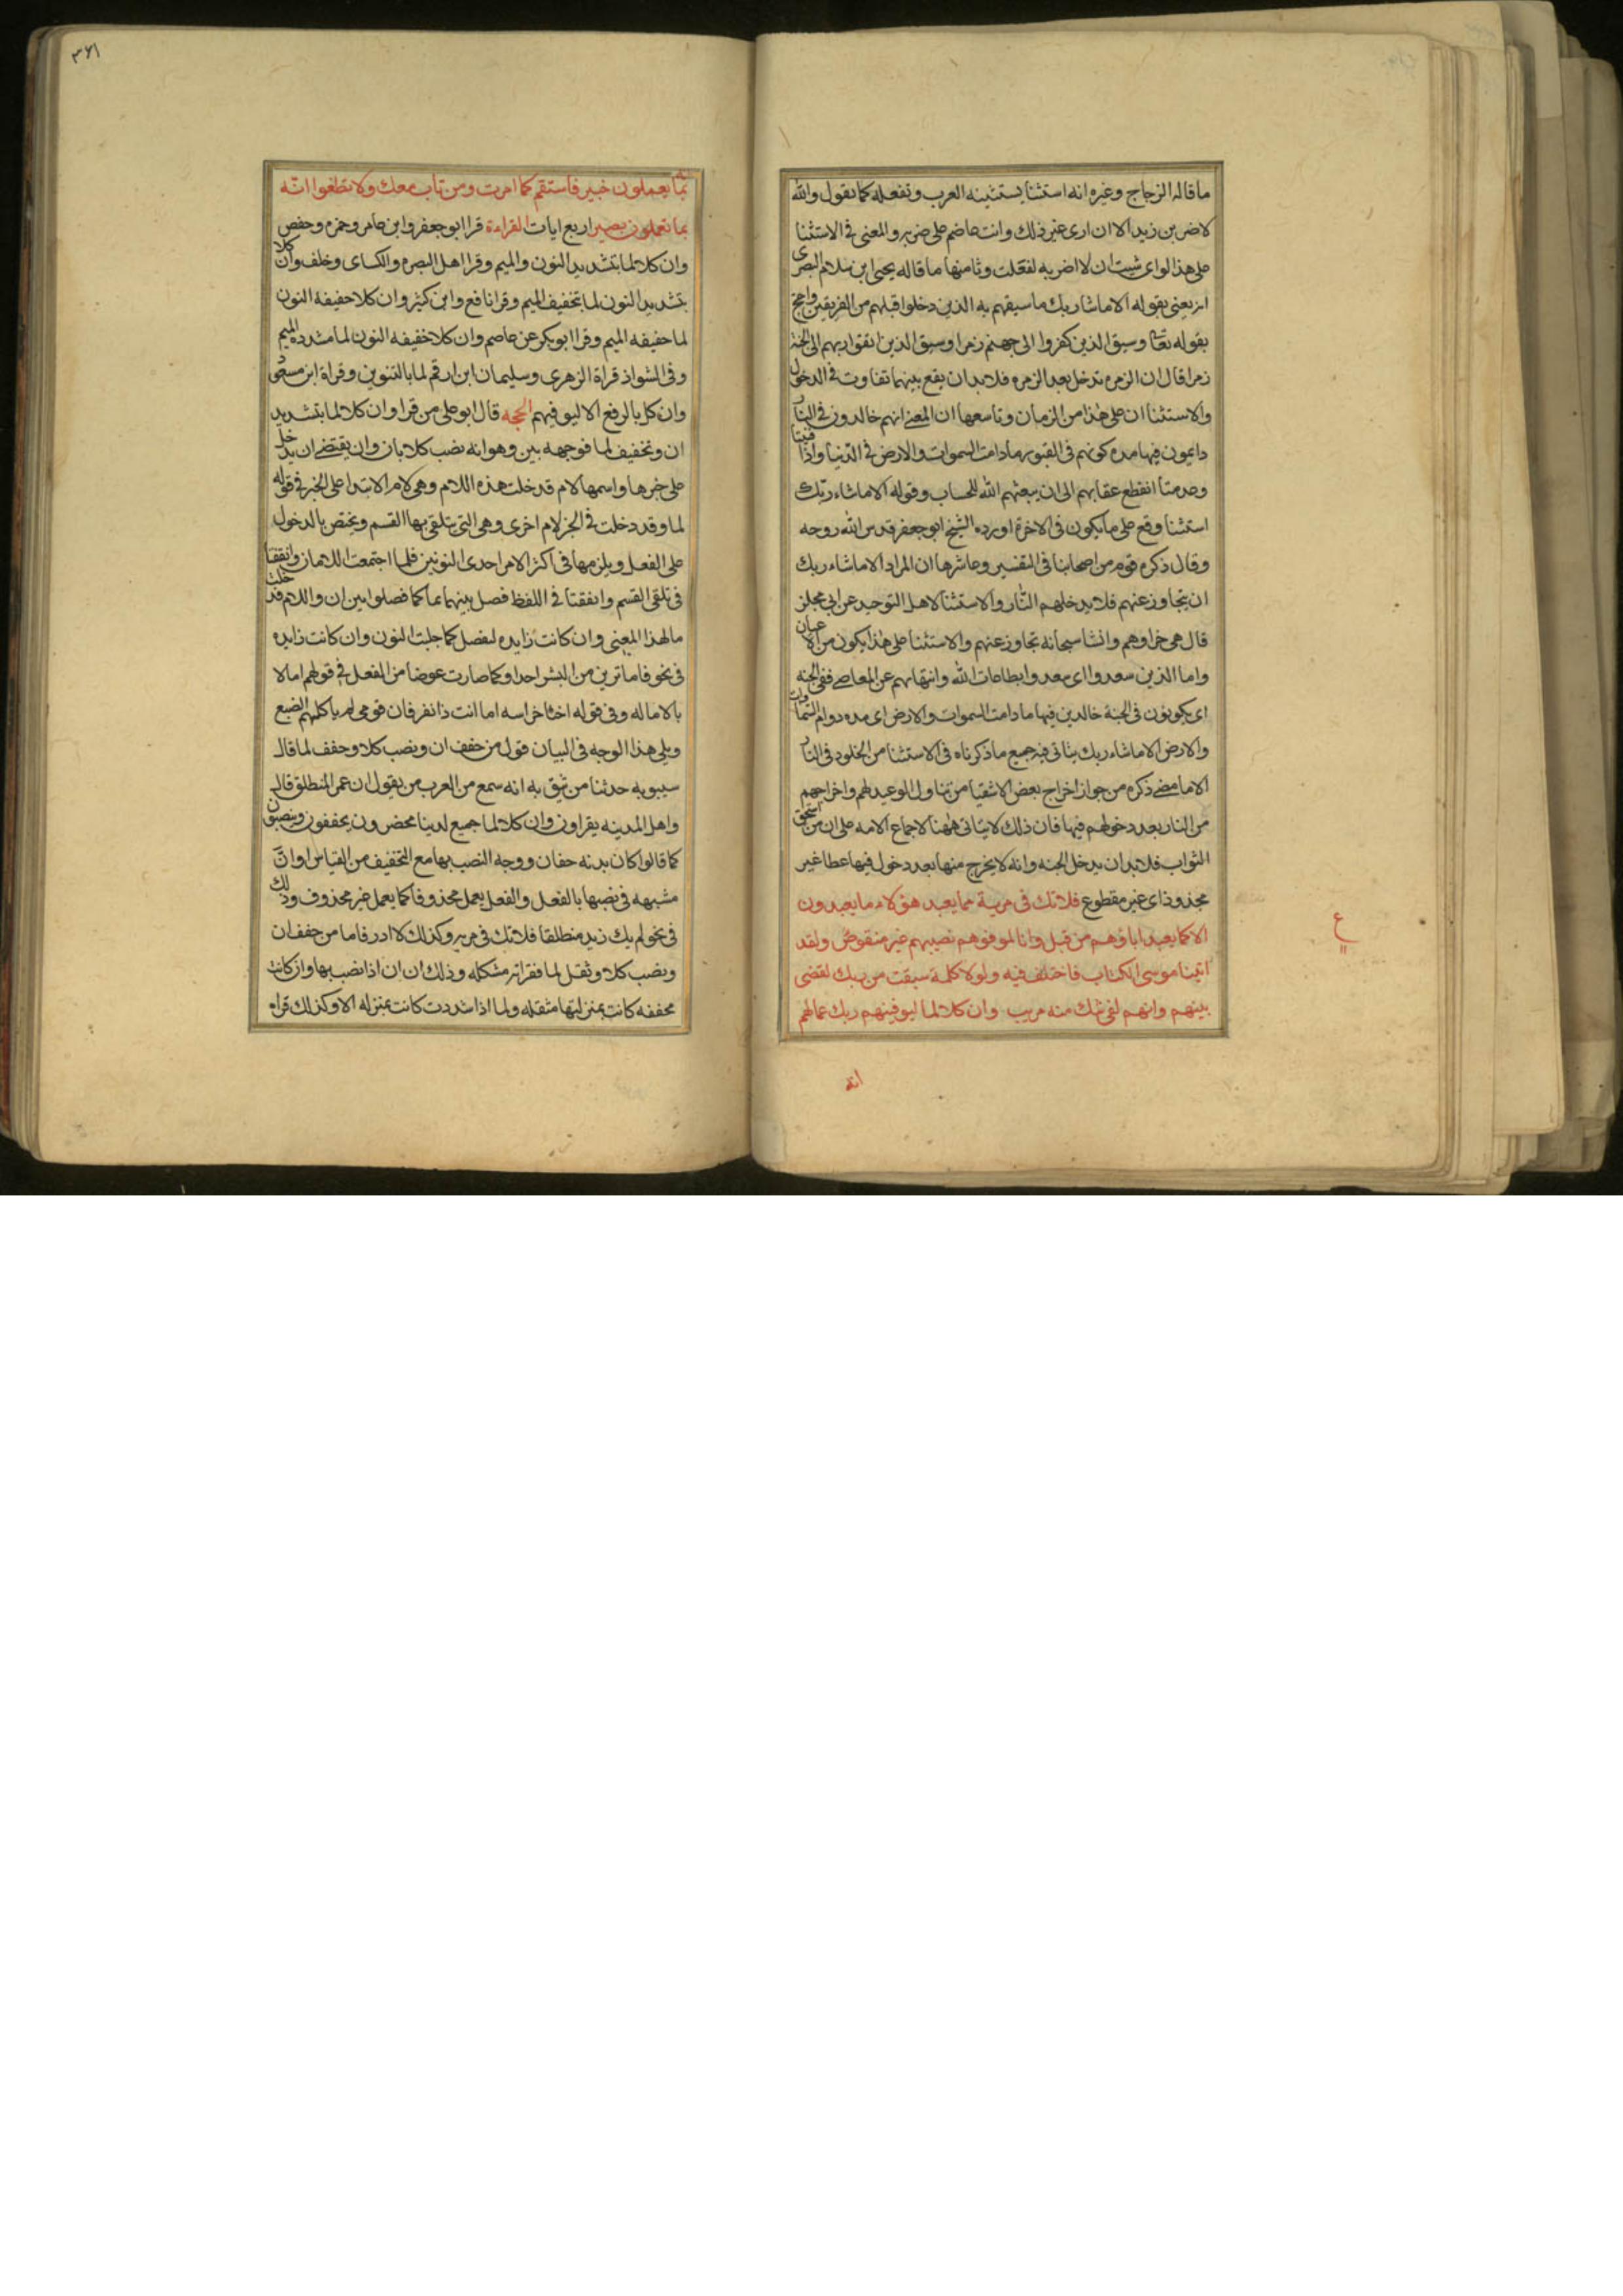 ما قاله الزجاج وغيره انه استثنا يستثنيه العرب وتفعله كما يقول والله
لاضربن زيدا الا ان ارى غير ذلك وانت عاضم على ضربه والمعنى فى الاستثنا
على هذا لواى شيت ان لا اضربه لفعلت وثامنها ما قاله يحيى ابن سلام البصرى
انه يعنى بقوله الا ما شا ربك ما سبقهم به الذين دخلوا قبلهم من الفريقين واحتج
بقوله تعا وسيق الذين كفروا الى جهنم زمرا وسيق الذين اتقوا ربهم الى الجنة
زمرا قال ان الزمره تدخل بعد الزمره فلا بد ان يقع بينهما تفاوت فى الدخول
والاستثنا ان على هذا من الزمان وتاسعها ان المعنى انهم خالدون فى النار
دايمون فيها مده كونهم فى القبور ما دامت السموات والارض فى الدنيا واذا فنيتا
وعدمتا انقطع عقابهم الى ان يبعثهم الله للحساب وقوله الا ما شاء ربك
استثنا وقع على ما يكون فى الاخرة اورده الشيخ ابو جعفر قدس الله روحه
وقال ذكره قوم من اصحابنا فى التفسير وعاشرها ان المراد الا ما شاء ربك
ان يتجاوز عنهم فلا يدخلهم النار والاستثنا لاهل التوحيد عن ابى مجلز
قال هى جزاوهم وان شا سبحانه تجاوز عنهم والاستثنا على هذا يكون من الاعيان
واما الذين سعدوا اى سعدوا بطاعات الله وانتهايهم عن المعاصى ففى الجنه
اى يكونون فى الجنة خالدين فيها ما دامت السموات والارض اى مده دوام السماوات
والارض الا ما شاء ربك يتاتى فيه جميع ما ذكرناه فى الاستثنا من الخلود فى النار
الا ما مضى ذكره من جواز اخراج بعض الاشقيا من تناول الوعيد لهم واخراجهم
من النار بعد دخولهم فيها فان ذلك لا يتاتى ههنا لاجماع الامه على ان من استحق
الثواب فلا بد ان يدخل الجنه وانه لا يخرج منها بعد دخول فيها عطا غير
مجذوذ اى غير مقطوع فلا تك فى مرية مما يعبد هؤلاء ما يعبدون
الا كما يعبد اباؤهم من قبل وانا لموفوهم نصيبهم غير منقوص ولقد
اتينا موسى الكتاب فاختلف فيه ولولا كلمة سبقت من ربك لقضى
بينهم وانهم لفى شك منه مريب وان كلا لما ليوفينهم ربك اعمالهم
انه
ع
٣٦١
بما يعملون خبير فاستقم كما امرت ومن تاب معك ولا تطغوا انه
بما تعملون بصير اربع ايات القراءة قرا ابو جعفر وابن عامر وحمزه وحفص
وان كلا لما بتشديد النون والميم وقرا اهل البصره والكساى وخلف وان كلا
بتشديد النون لما بتخفيف الميم وقرا نافع وابن كثير وان كلا خفيفه النون
لما خفيفه الميم وقرا ابو بكر عن عاصم وان كلا خفيفه النون لما مشدده الميم
وفى الشواذ قراة الزهرى وسليمان ابن ارقم لما بالتنوين وقراة ابن مسعود
وان كل بالرفع الا ليوفيهم الحجه قال ابو على من قرا وان كلا لما بتشديد
ان وتخفيف لما فوجهه بين وهو انه نصب كلا بان وان يقتضى ان يدخل
على خبرها واسمها لام قد خلت هذه اللام وهى لام الابتدا على الخبر فى قوله
لما وقد دخلت فى الخبر لام اخرى وهى التى يتلقى بها القسم ويختص بالدخول
على الفعل ويلزمها فى اكثر الامر احدى النونين فلما اجتمعت اللامان واتفقتا
فى تلقى القسم واتفقتا فى اللفظ فصل بينهما بما كما فصلوا بين ان واللام فدخلت
ما لهذا المعنى وان كانت زايده لتفصل كما جلبت النون وان كانت زايده
فى نحو فاما ترين من البشر احدا وكما صارت عوضا من الفعل فى قولهم اما لا
بالاماله وفى قوله اخثا خراسه اما انت ذا نفر فان قومى لم ياكلهم الضبع
ويلى هذا الوجه فى البيان قول من خفف ان ونصب كلا وخفف لما قال
سيبويه حدثنا من نثق به انه سمع من العرب من يقول ان عمر المنطلق قال
واهل المدينه يقراون وان كلا لما جميع لدينا محضرون يخففون وينصبون
كما قالوا كان بدنه حقان ووجه النصب بها مع التخفيف من القياس او انّ
مشبهه فى نصبها بالفعل والفعل يعمل محذوفا كما يعمل غير محذوف وذلك
فى نحو لم يك زيد منطلقا فلا تك فى مريه وكذلك لا ادر فاما من خفف ان
ونصب كلا وثقل لما فقراته مشكله وذلك ان ان اذا نصب بها وان كانت
مخففه كانت بمنزلتها مثقله ولما اذا شددت كانت بمنزله الا وكذلك قراه